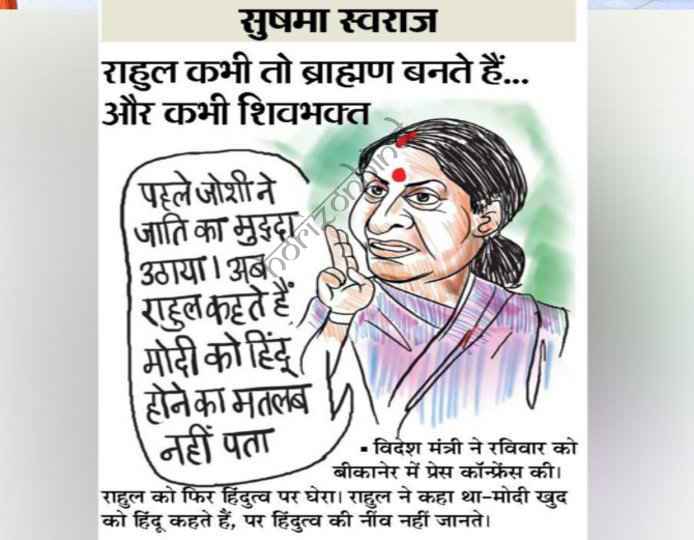 सुषमा स्वराज
राहुल कभी तो ब्राह्मण बनते हैं...
और कभी शिवभक्त
पहले जोशी ने
जाति का मुद्दा
उठाया। अब
राहुल कहते हैं
मोदी को हिंदू
होने का मतलब
नहीं पता
▪ विदेश मंत्री ने रविवार को
बीकानेर में प्रेस कॉन्फ्रेंस की।
राहुल को फिर हिंदुत्व पर घेरा। राहुल ने कहा था-मोदी खुद
को हिंदू कहते हैं, पर हिंदुत्व की नींव नहीं जानते।